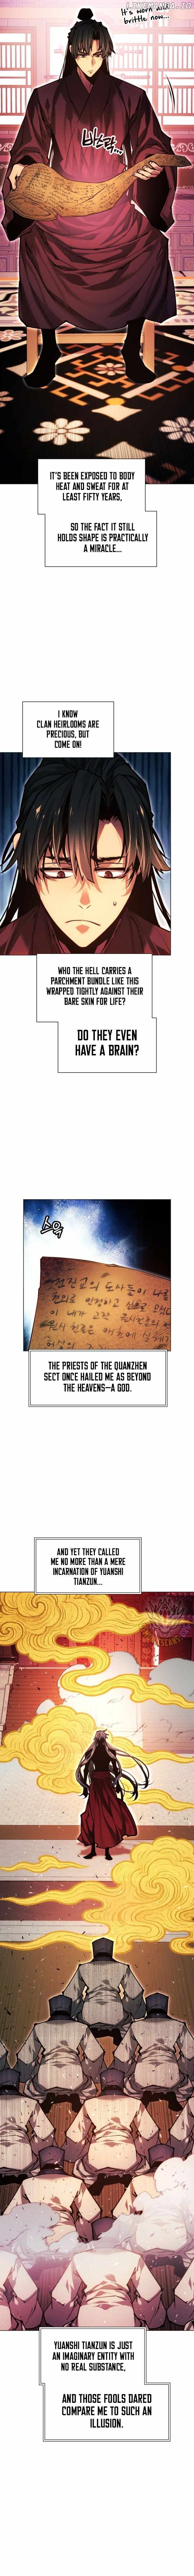 It's worn and
brittle now...
IT'S BEEN EXPOSED TO BODY
HEAT AND SWEAT FOR AT
LEAST FIFTY YEARS,
SO THE FACT IT STILL
HOLDS SHAPE IS PRACTICALLY
A MIRACLE...
I KNOW
CLAN HEIRLOOMS ARE
PRECIOUS, BUT
COME ON!
WHO THE HELL CARRIES A
PARCHMENT BUNDLE LIKE THIS
WRAPPED TIGHTLY AGAINST THEIR
BARE SKIN FOR LIFE?
DO THEY EVEN
HAVE A BRAIN?
THE PRIESTS OF THE QUANZHEN
SECT ONCE HAILED ME AS BEYOND
THE HEAVENS—A GOD.
AND YET THEY CALLED
ME NO MORE THAN A MERE
INCARNATION OF YUANSHI
TIANZUN...
YUANSHI TIANZUN IS JUST
AN IMAGINARY ENTITY WITH
NO REAL SUBSTANCE,
AND THOSE FOOLS DARED
COMPARE ME TO SUCH AN
ILLUSION.